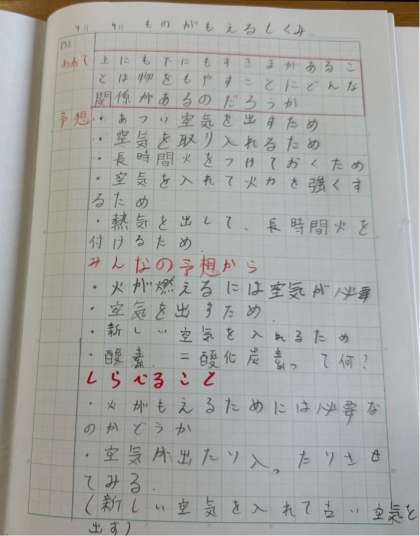 9/11 9/11 ものがもえるしくみ
めあて 上にも下にもすきまがあるこ
とは物をもやすことにどんな
関係があるのだろうか
予想 ・あつい空気を出すため
・空気を取り入れるため
・長時間火をつけておくため
・空気を入れて火力を強くす
るため
・熱気を出して、長時間火を
付けるため
みんなの予想から
・火が燃えるには空気が必要
・空気を出すため
・新しい空気を入れるため
・酸素、二酸化炭素って何?
しらべること
・火がもえるためには必要な
のかどうか
・空気が出たり入ったりさせ
てみる.
(新しい空気を入れて古い空気を
出す)